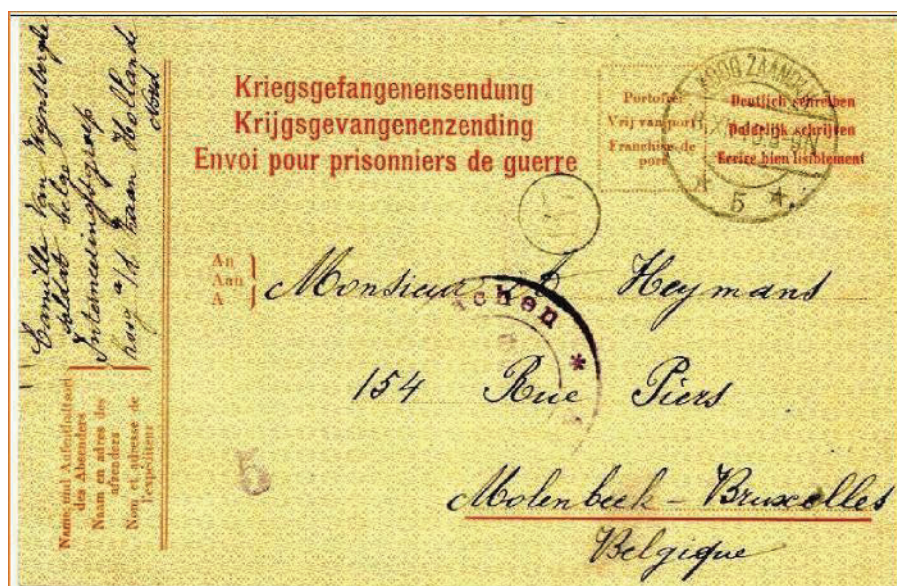 Emille Van Wynsberghe
Soldat belge
Interneeringsgroep
Koog a/d Zaan Hollande
Nord
Name und Aufenthaltsort
des Absenders
Naam en adres des
afzenders
Nom et adresse de
l'expéditeur
Kriegsgefangenensendung
Krijgsgevangenenzending
Envoi pour prisonniers de guerre
Portofrei
Vrij van port
Franchise de
port
Deutlich schreiben
Duidelijk schrijven
Ecrire bien lisiblement
KOOG ZAANDIJK
5
An
Aan
A
Monsieur Heymans
154 Rue Piers
Molenbeek - Bruxelles
Belgique
chen *
5